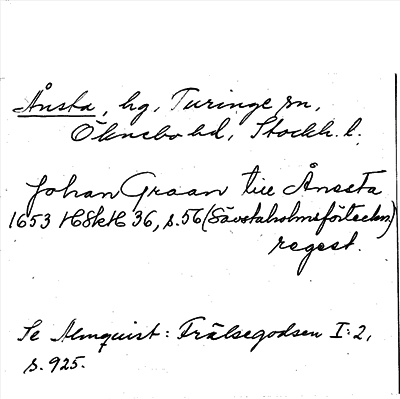 Ånsta, hg, Turinge sn,
Öknebo hd, Stockh. l.
Johan Graan till Ånssta
1653 HSkH 36, s. 56 (Sävstaholmsförteckn)
regest.
Se Almquist: Frälsegodsen I:2,
s. 925.